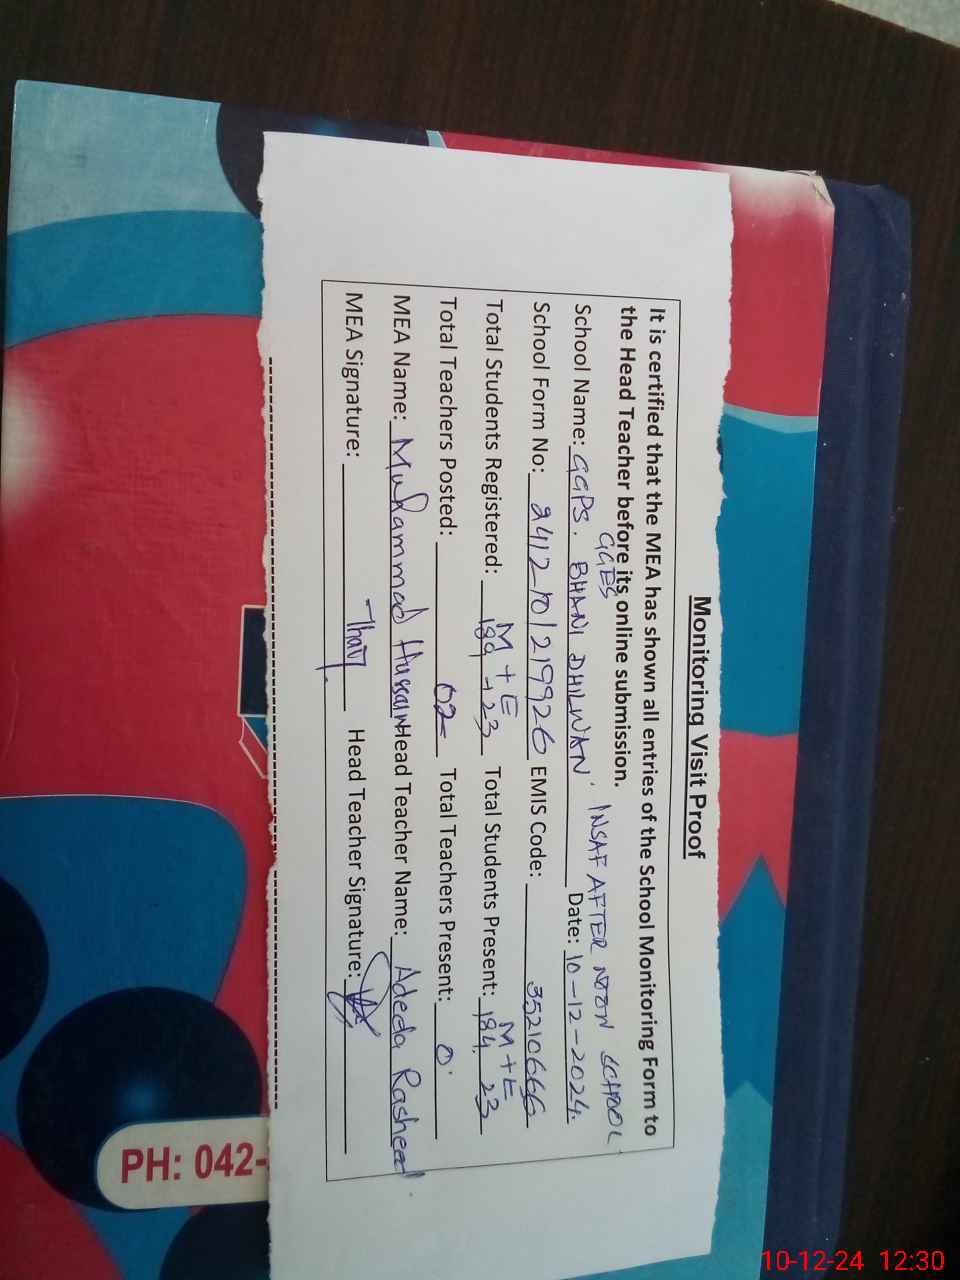 Monitoring Visit Proof
It is certified that the MEA has shown all entries of the School Monitoring Form to
the Head Teacher before its online submission.
GGES INSAF AFTER NOON SCHOOL
School Name: GGPS. BHANI DHILWAN, Date: 10-12-2024.
School Form No: 2412-10/219926 EMIS Code: 35210666
M + E M + E
Total Students Registered: 189 + 23 Total Students Present: 184, 23
Total Teachers Posted: 02 Total Teachers Present: 0
MEA Name: Muhammad Hussain Head Teacher Name: Adeela Rasheed
MEA Signature: Head Teacher Signature:
PH: 042-
10-12-24 12:30